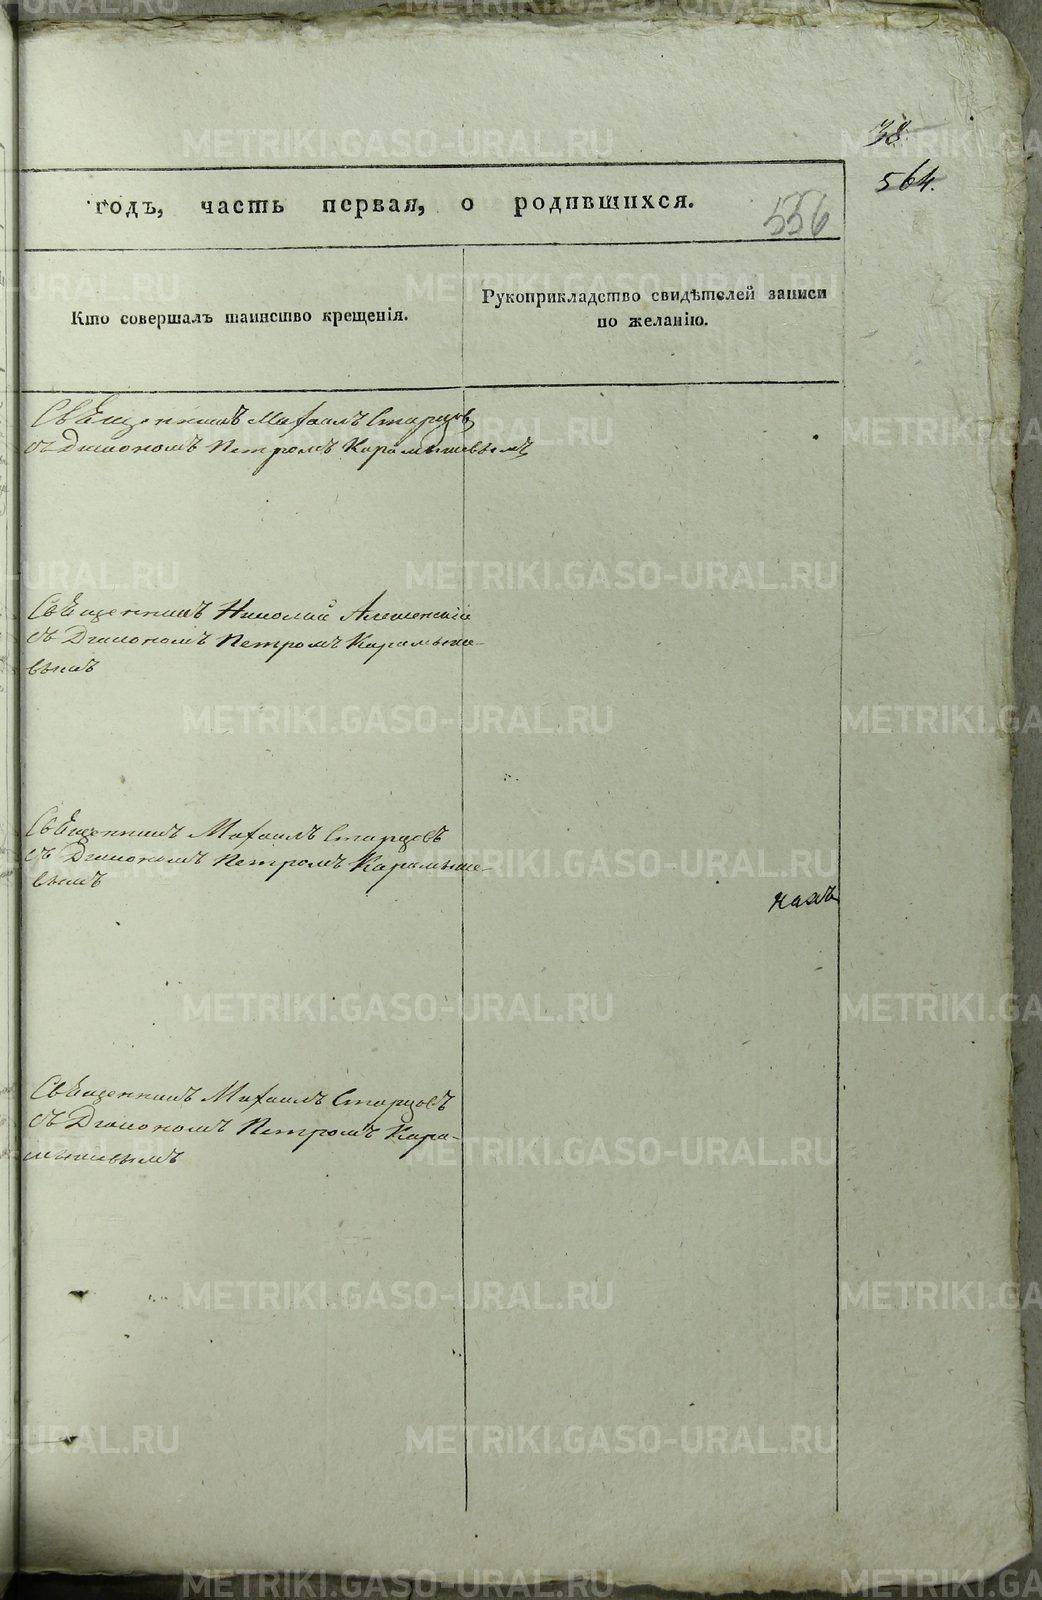 38
564.
годъ, часть первая, о родившихся.
556
Кто совершалъ таинство крещенія.
Рукоприкладство свидѣтелей записи
по желанію.
Священникъ Михаилъ Старцовъ
съ Діакономъ Петромъ Карамышевымъ
Священникъ Николай
съ Діакономъ Петромъ Карамыше-
вымъ
Священникъ Михаилъ Старцовъ
съ Діакономъ Петромъ Карамыше-
вымъ
Священникъ Михаилъ Старцовъ
съ Діакономъ Петромъ Кара-
мышевымъ
METRIKI.GASO-URAL.RU